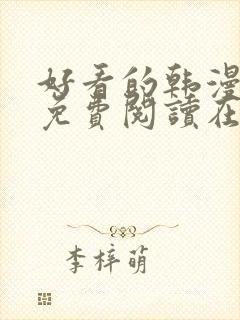 好看的韩漫
免費閱讀在
李梓萌